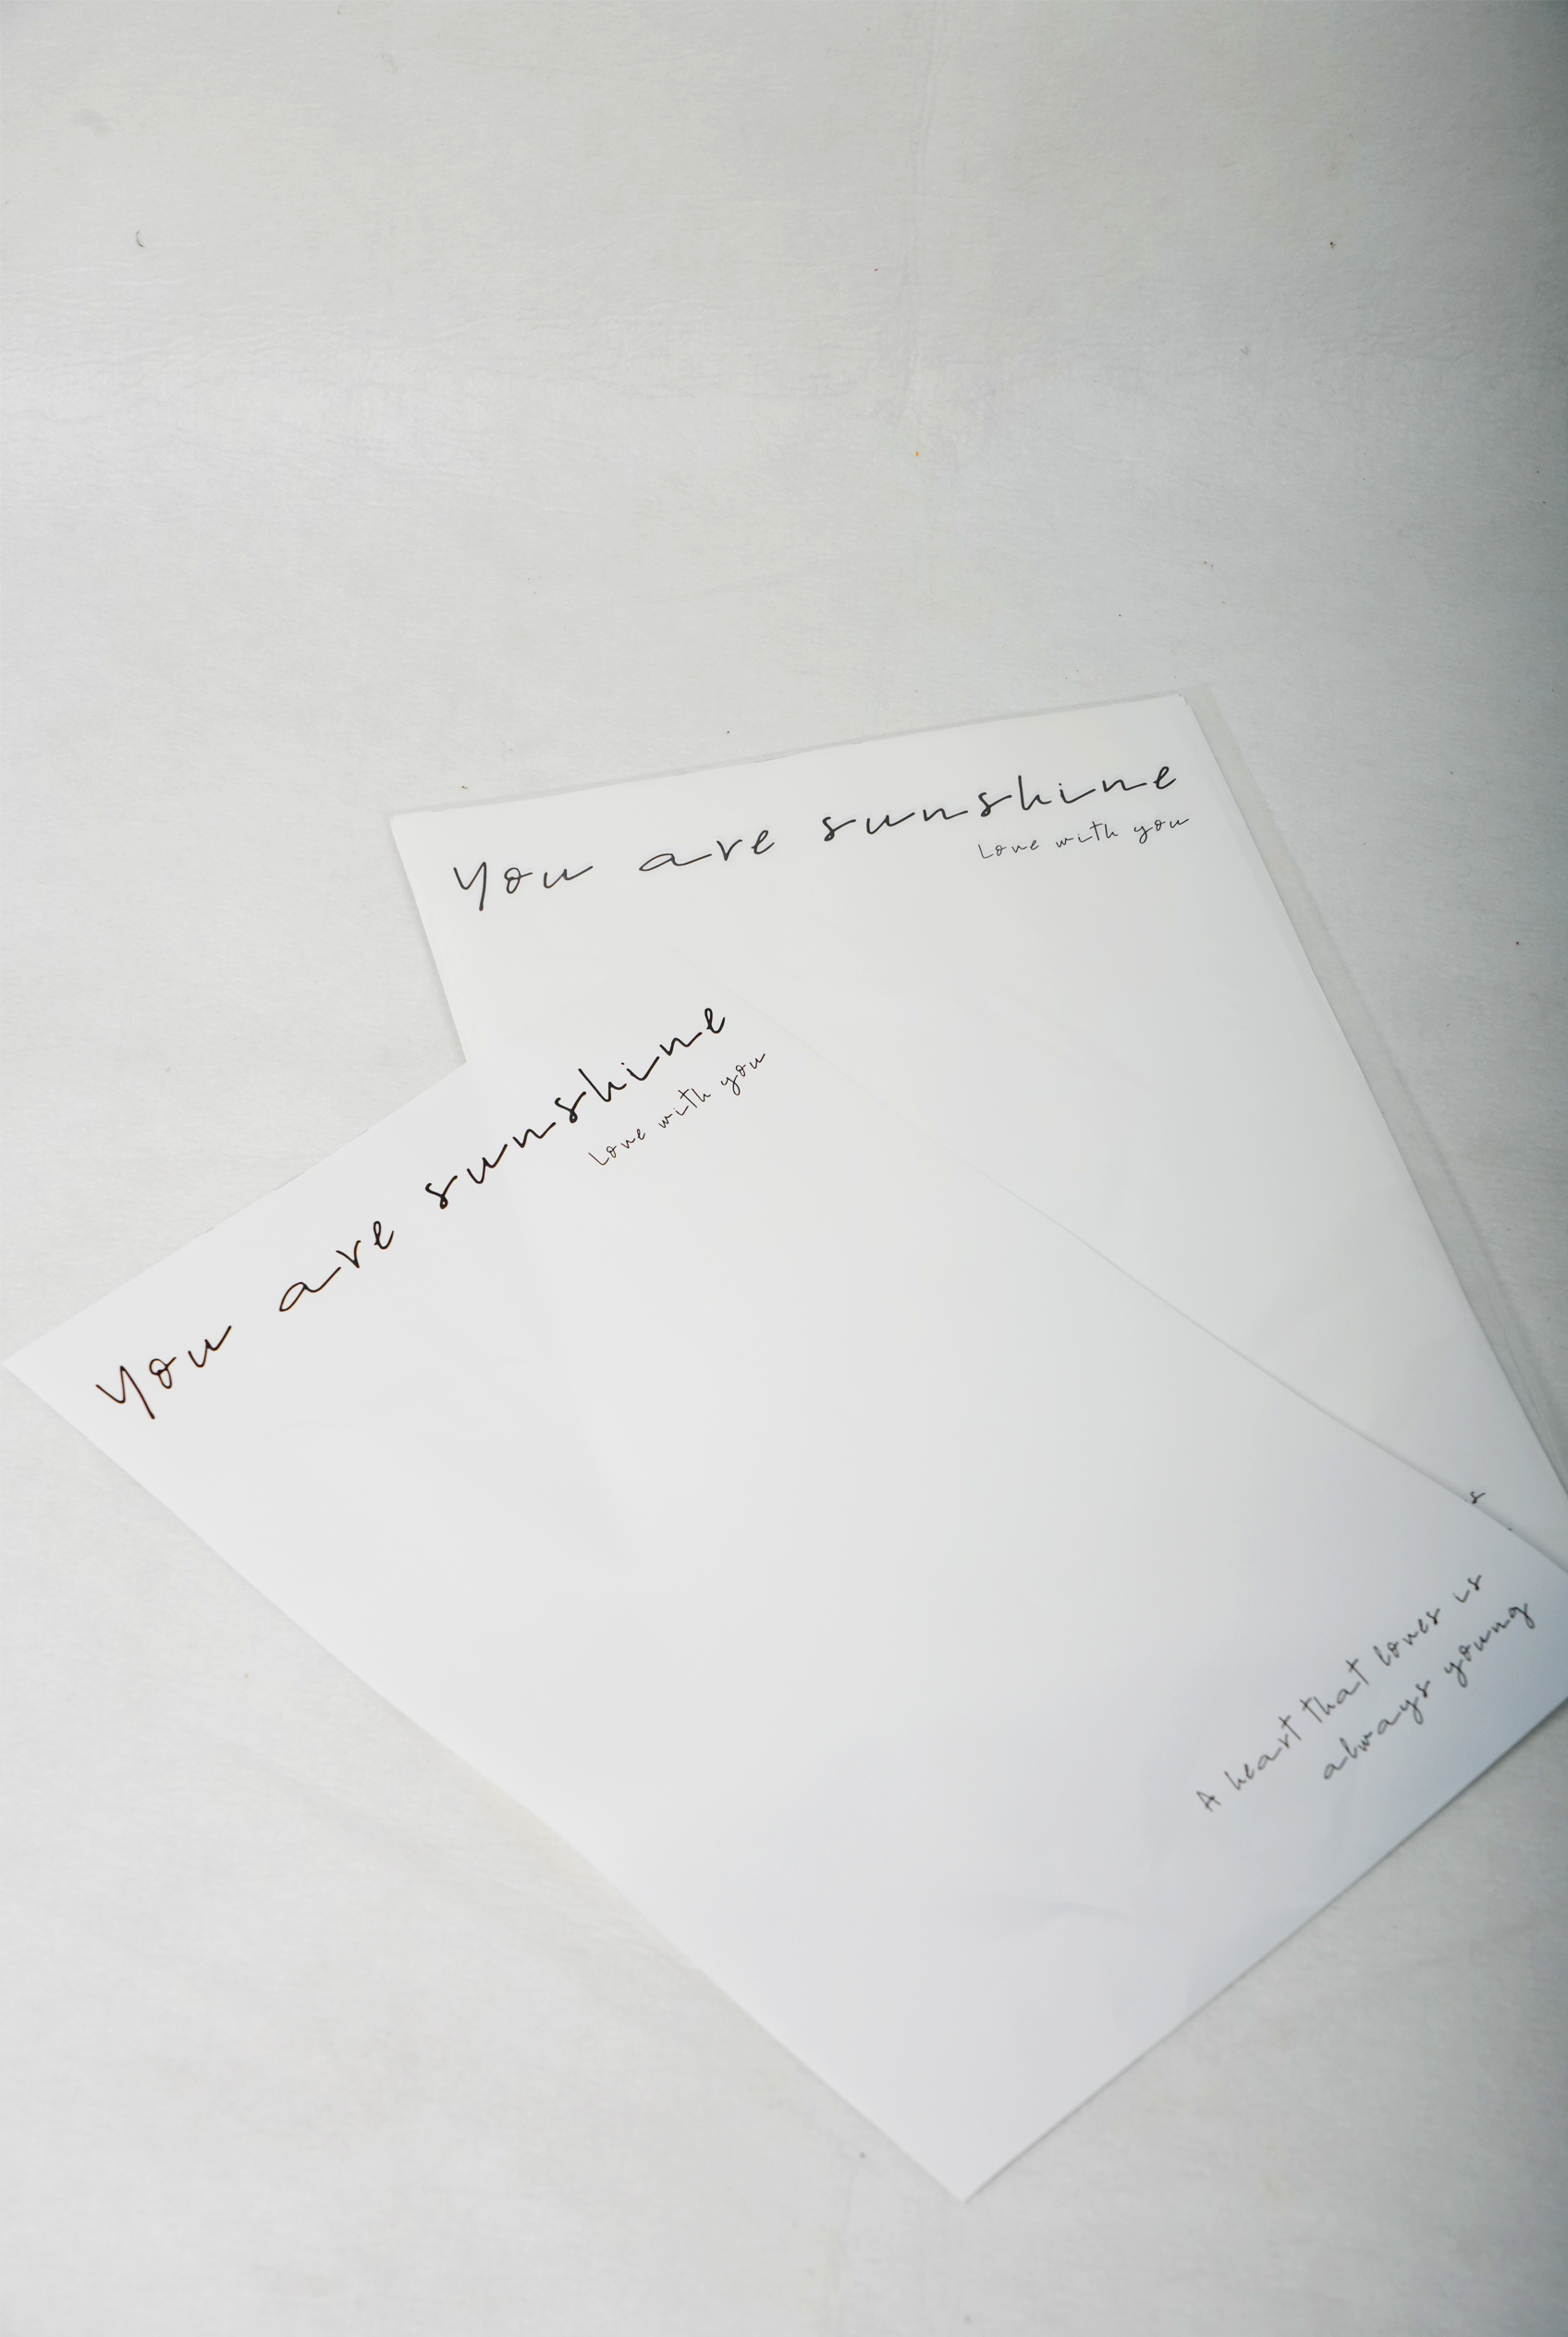 You are sunshine
Love with you
You are sunshine
Love with you
s
A heart that loves is
always young